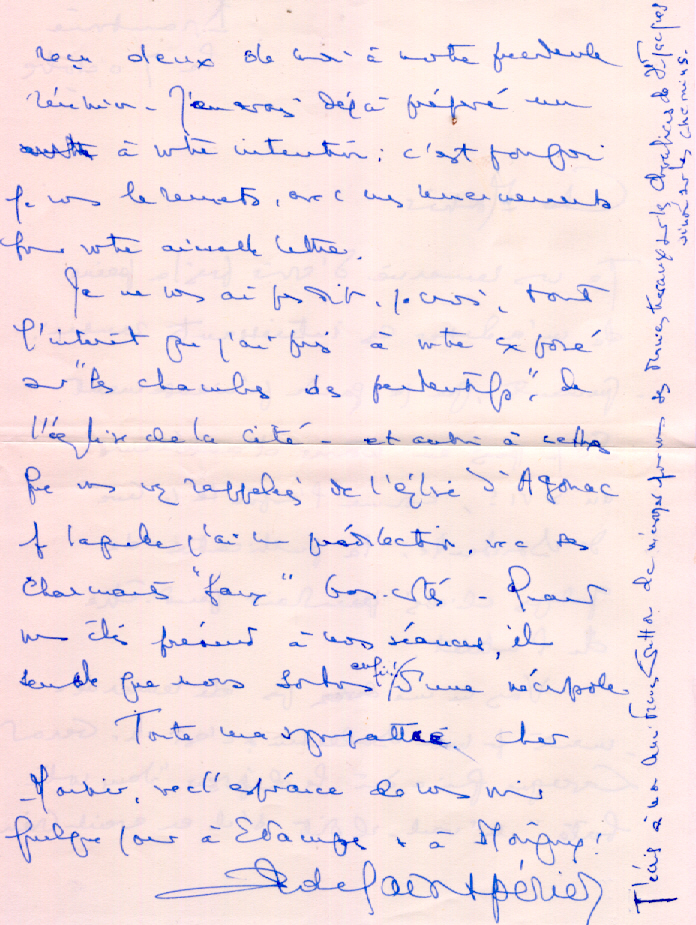 reçu deux de moi à notre précédente
réunion - J'en avais déjà préparé un
autre à votre intention : c'est pourquoi
je vous le remets, avec mes remerciements
pour votre aimable lettre.
Je ne vous ai pas dit, je crois, tout
l'intérêt que j'ai pris à votre exposé
sur "les chambres des pendentifs" de
l'église de la Cité - et aussi à celles
que vous avez rappelées de l'église d'Agonac
p laquelle j'ai une prédilection, avec ses
charmants "faux" bas-côtés - Quand
vous êtes présent à nos séances, il
semble que nous sortons enfin d'une nécropole.
Toute ma sympathie, cher
Monsieur, avec l'espérance de vous voir
quelque jour à Etampes & à Morigny !
R de Saint Périer
J'écris à mon ami France de vous ses travaux sur les Chapelles de St Jacques
sur les chemins.